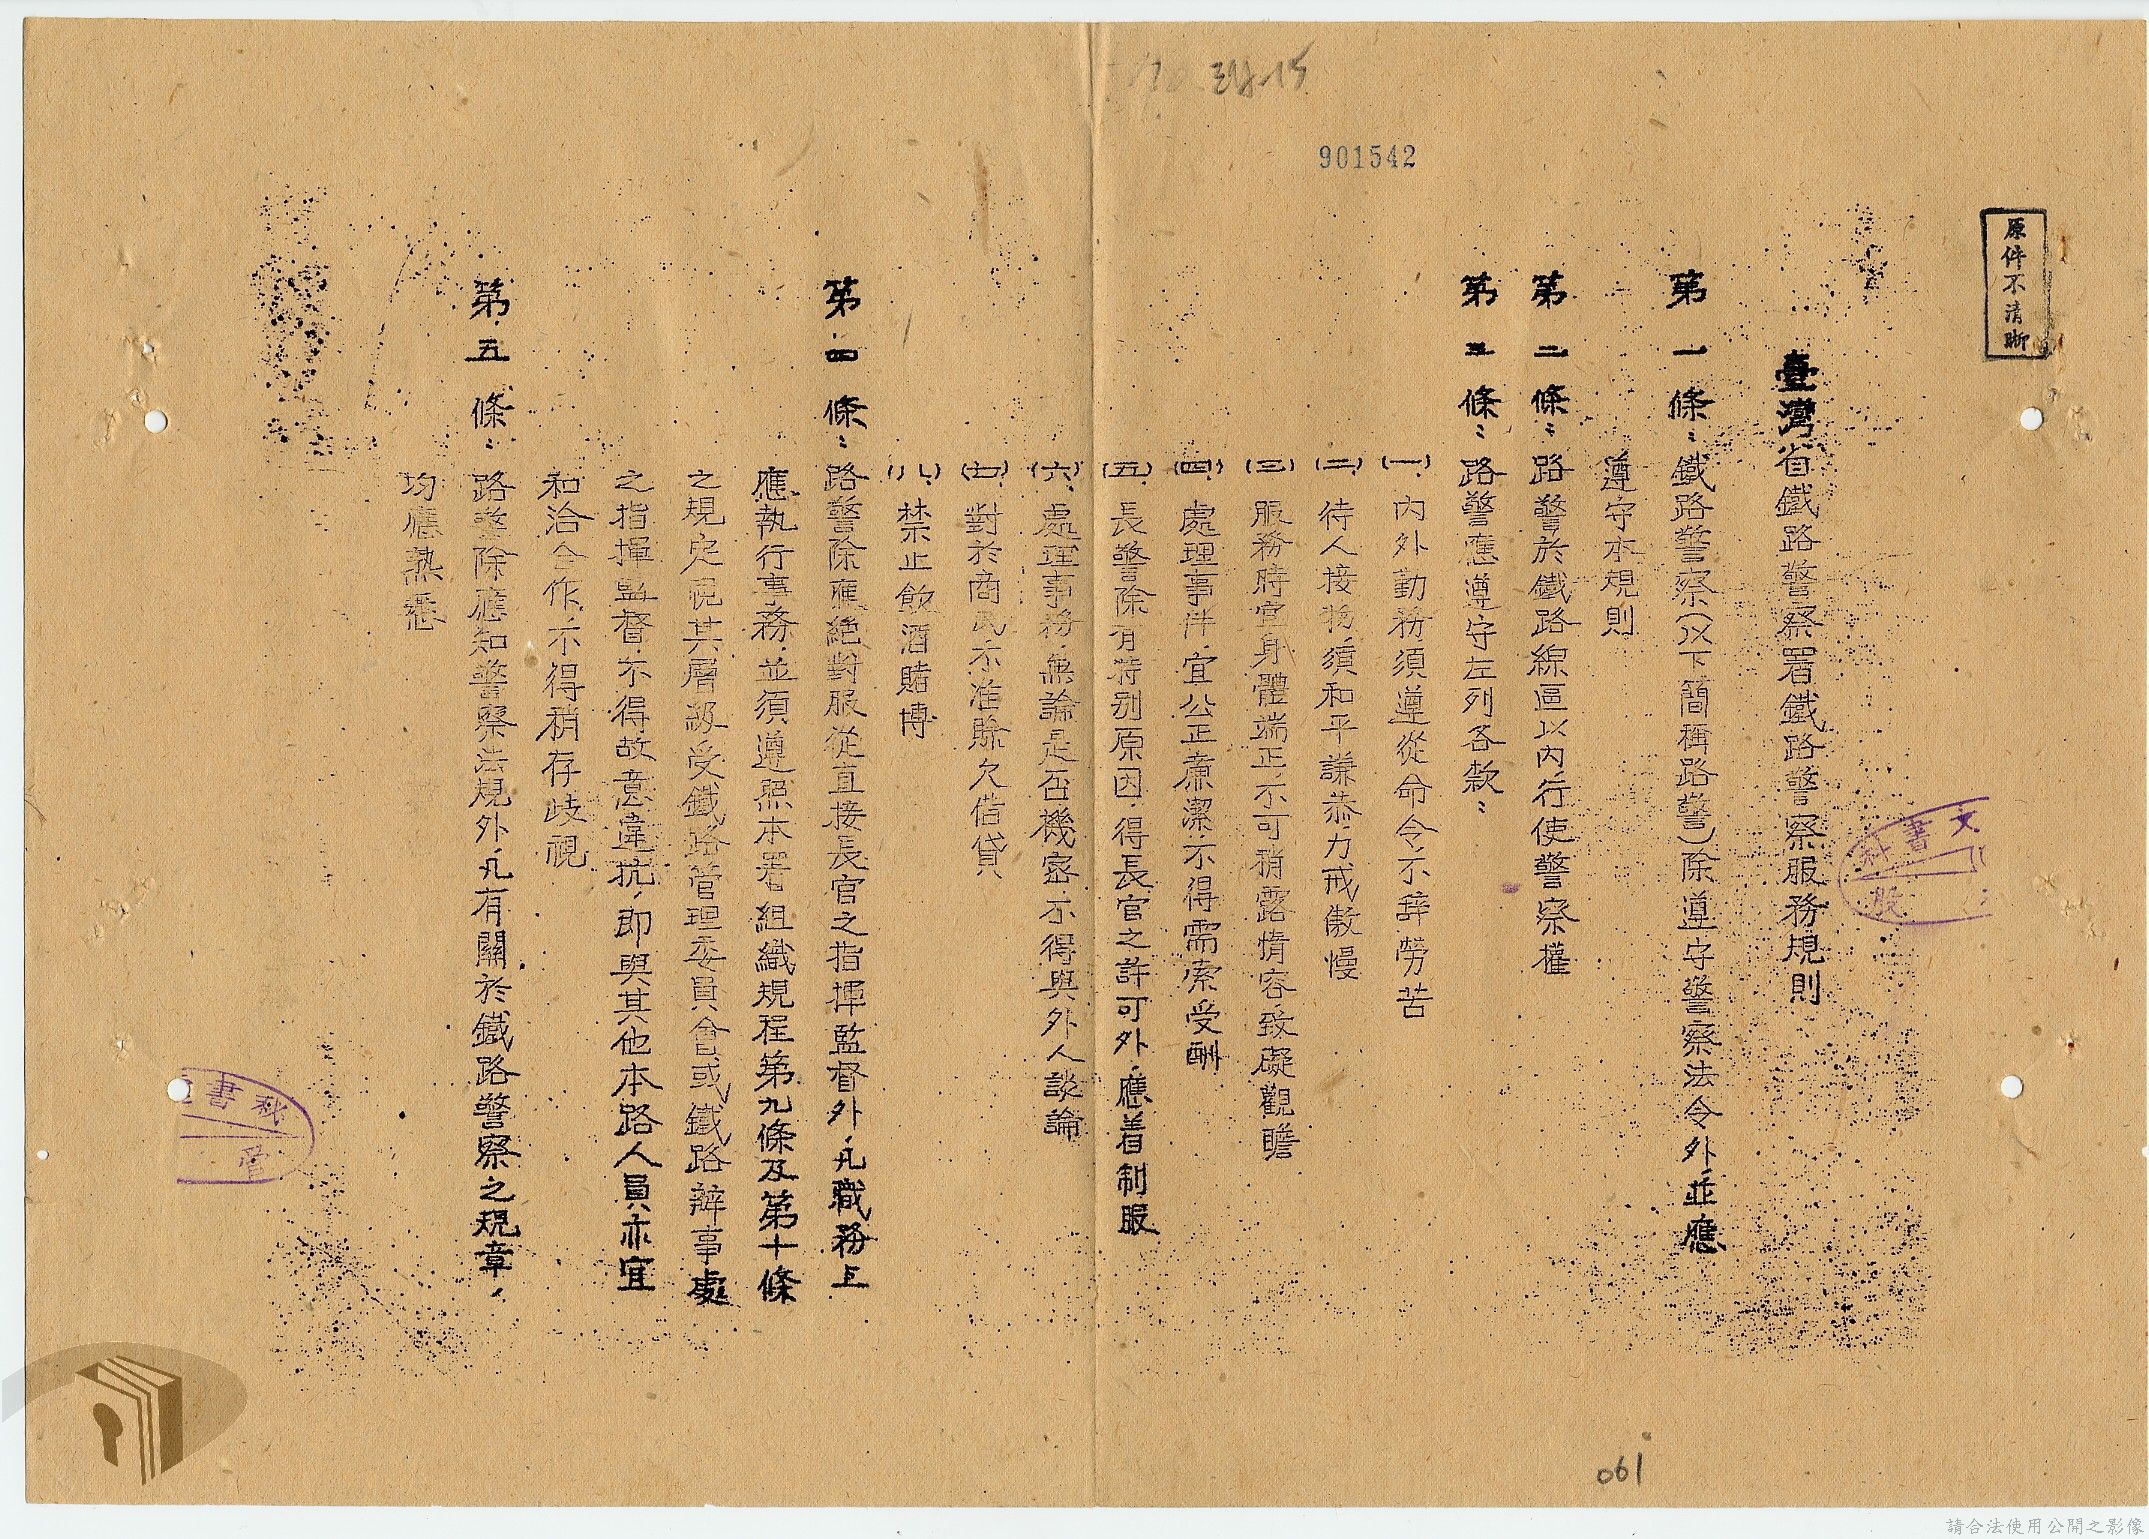 901542
原件不清晰
臺灣省鐵路警察署鐵路警察服務規則
第一條：鐵路警察（以下簡稱路警）除遵守警察法令外，並應
遵守本規則
第二條：路警於鐵路線區以內，行使警察權
第三條：路警應遵守左列各款：
(一)、內外勤務，須遵從命令，不辭勞苦
(二)、待人接物，須和平謙恭，力戒傲慢
(三)、服務時宜身體端正，不可稍露惰容，致礙觀瞻
(四)、處理事件，宜公正廉潔，不得需索受酬
(五)、長警除有特别原因，得長官之許可外，應着制服
(六)、處理事務，無論是否機密，不得與外人談論
(七)、對於商民，不准賒欠借貸
(八)、禁止飲酒賭博
第四條：路警除應絕對服從直接長官之指揮監督外，凡職務上
應執行事務，並須遵照本署組織規程第九條及第十條
之規定視其層級受鐵路管理委員會或鐵路辦事處
之指揮監督，不得故意違抗，即與其他本路人員亦宜
和洽合作，不得稍存歧視
第五條：路警除應知警察法規外，凡有關於鐵路警察之規章，
均應熟悉
文書科
股
秘書
061
請合法使用公開之影像